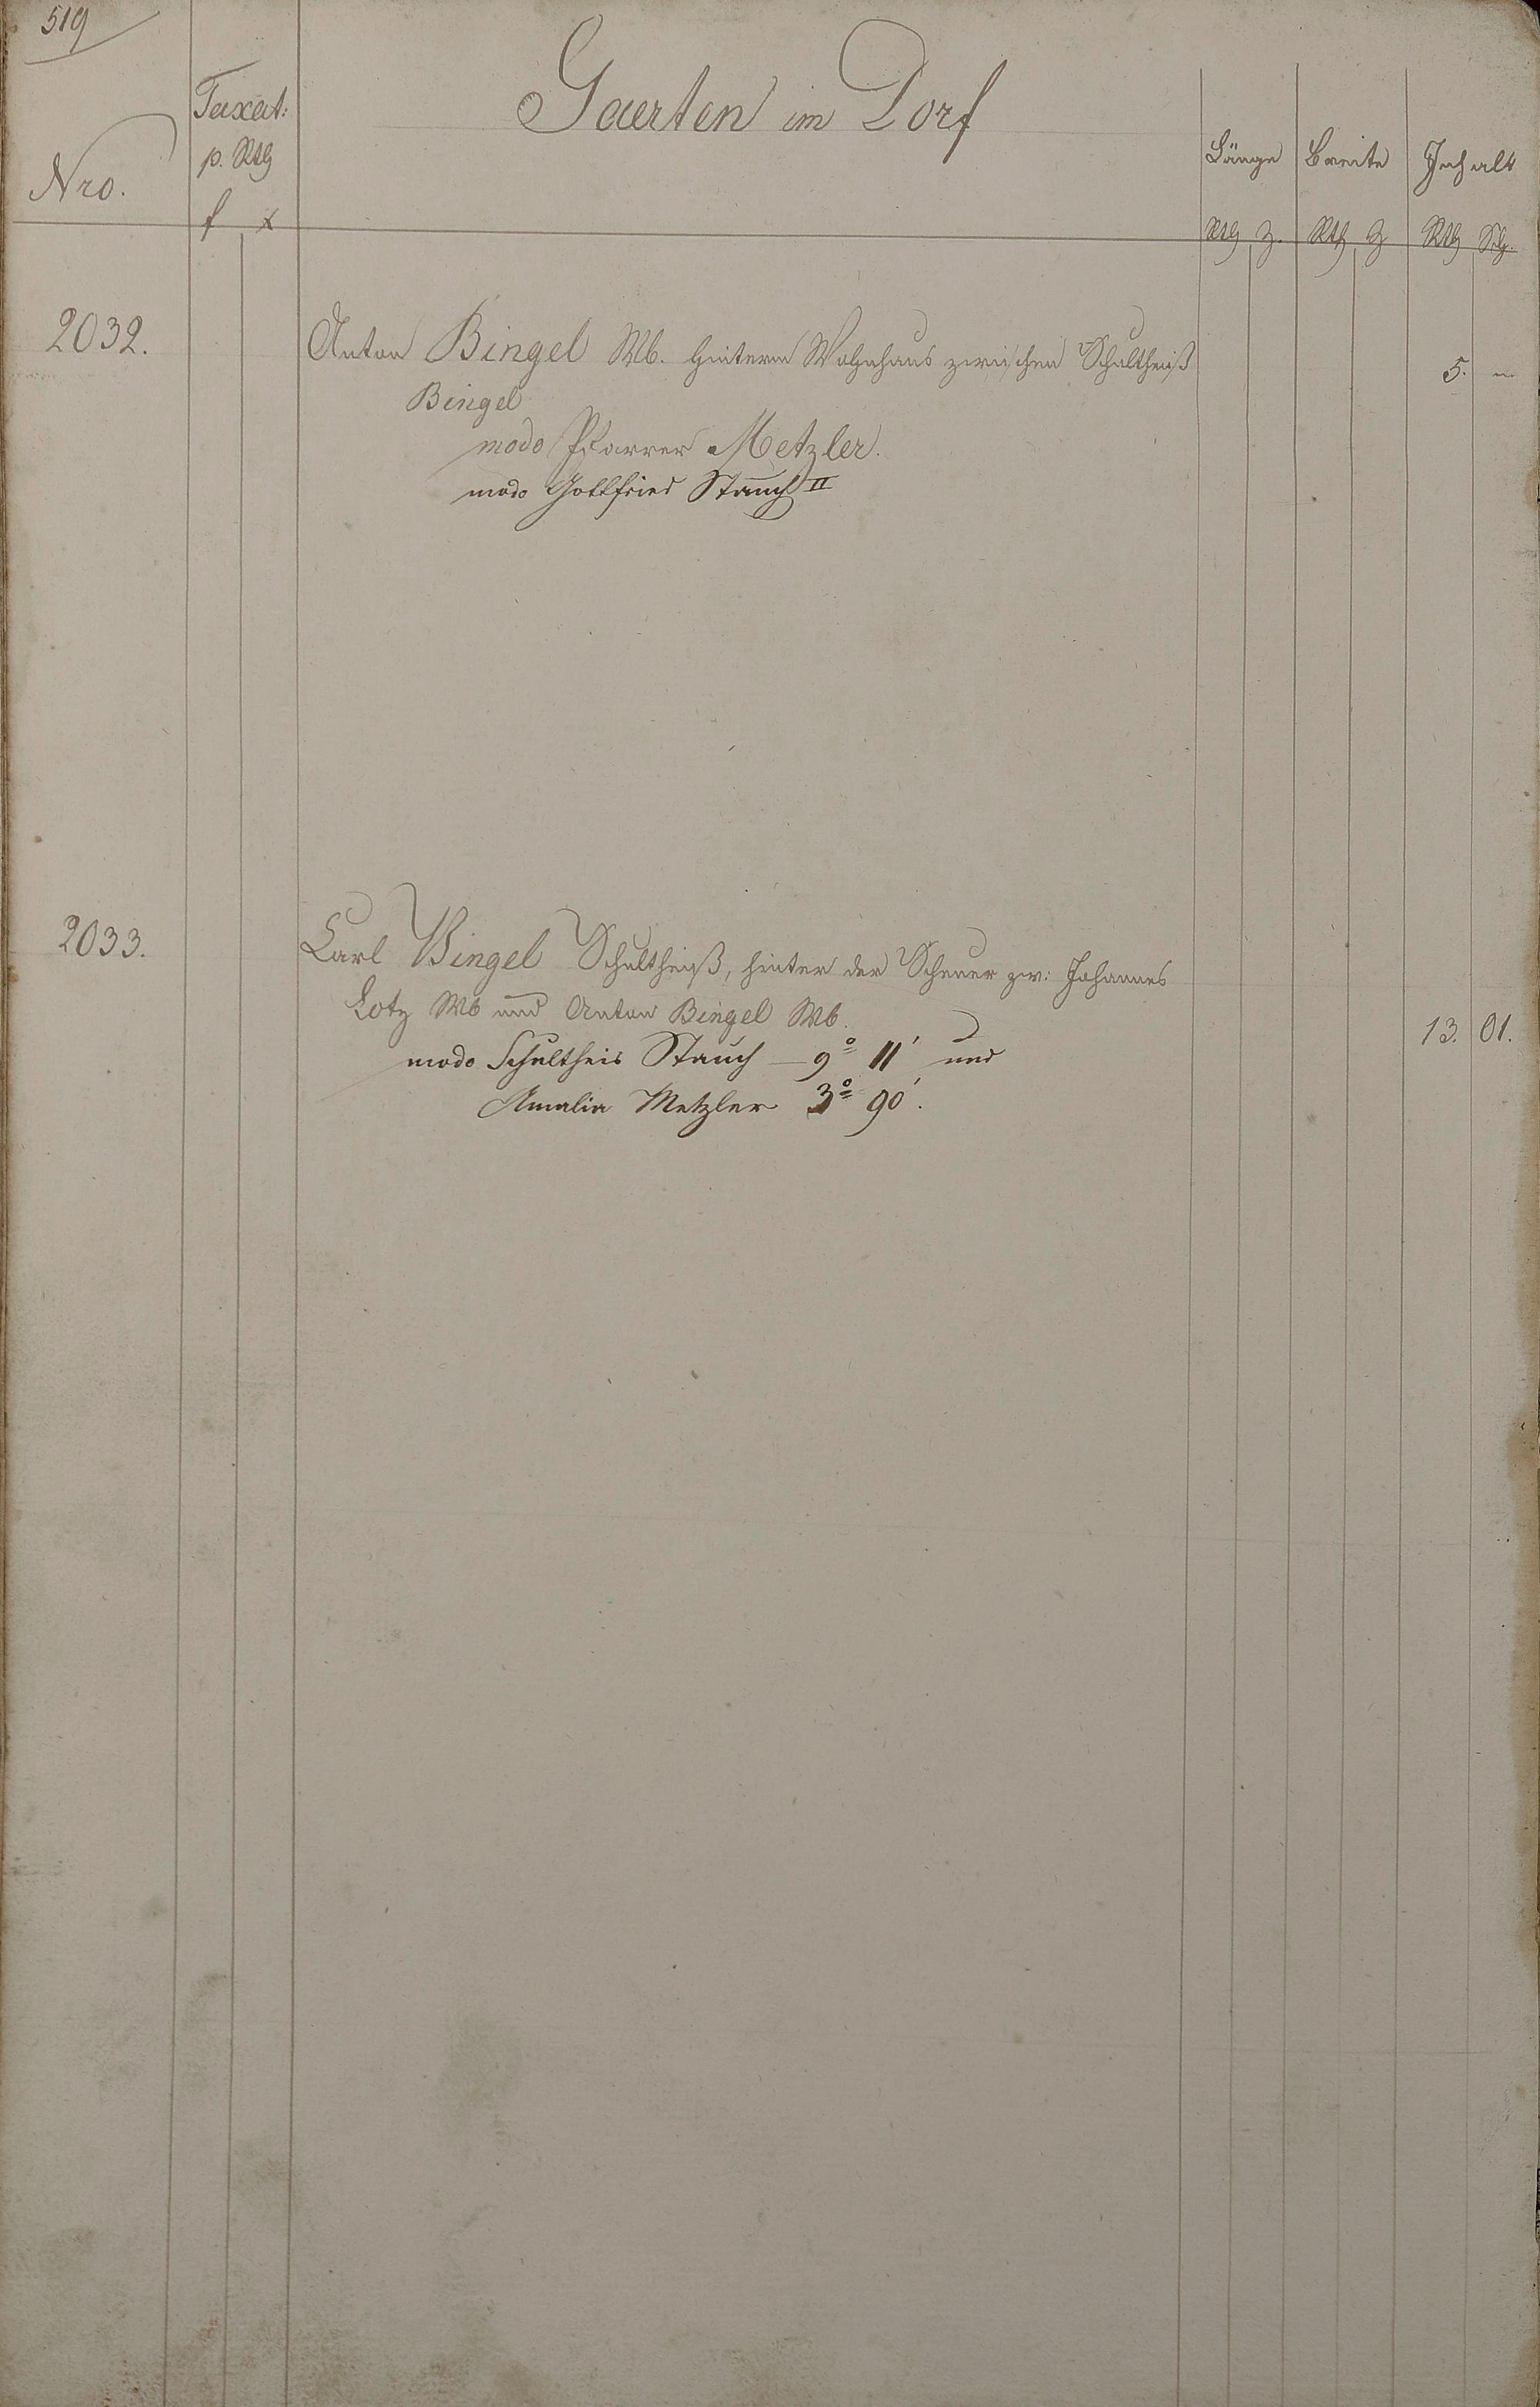 519
Gaerten im Dorf
Nro.
Taxat:
p. Rth
f x
Länge Breite Inhalt
Rth Z. Rth Z Rth Sch.
2032. Anton Bingel Wb. hinterm Wohnhaus zwischen Schultheiß 5. –
Bingel
modo Pfarrer Metzler.
modo Gottfried Stauch II
2033. Carl Bingel Schultheiß, hinter der Scheuer zw: Johannes
Lotz Wb und Anton Bingel Wb. 13. 01.
modo Schultheis Stauch – 9° 11' und
Amalia Metzler 3° 90'.